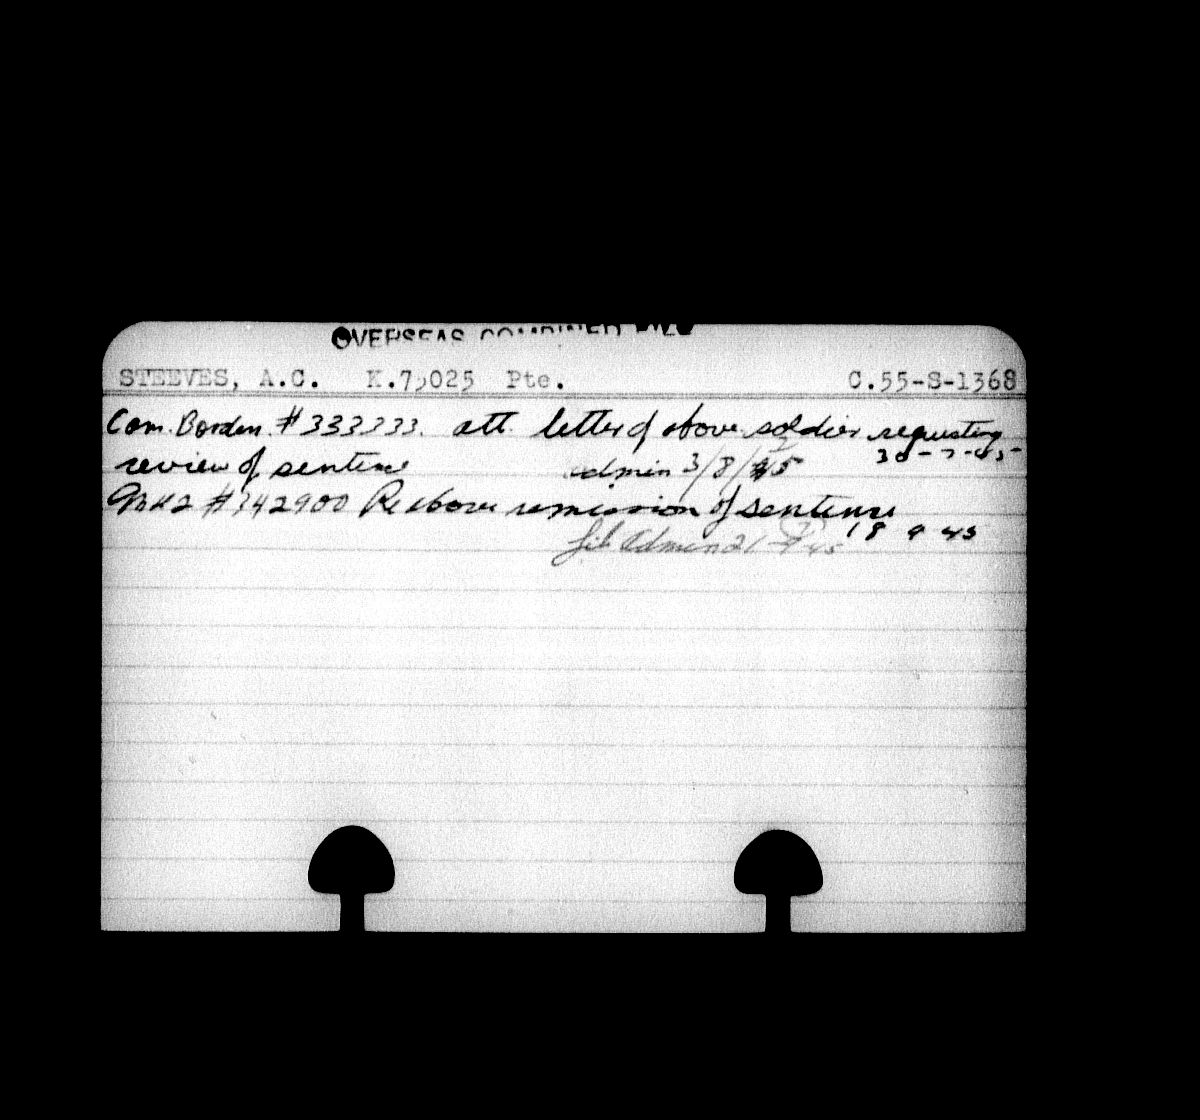 OVERSEAS COMBINED
STEEVES, A.C. K.75025 Pte. C.55-S-1368
Com. Borden. #333333. att. letter of above soldier requesting
30-7-45
review of sentence admin 3/8/45
#342900 Re above remission of sentence
18 9 45
Admin 21 9 45